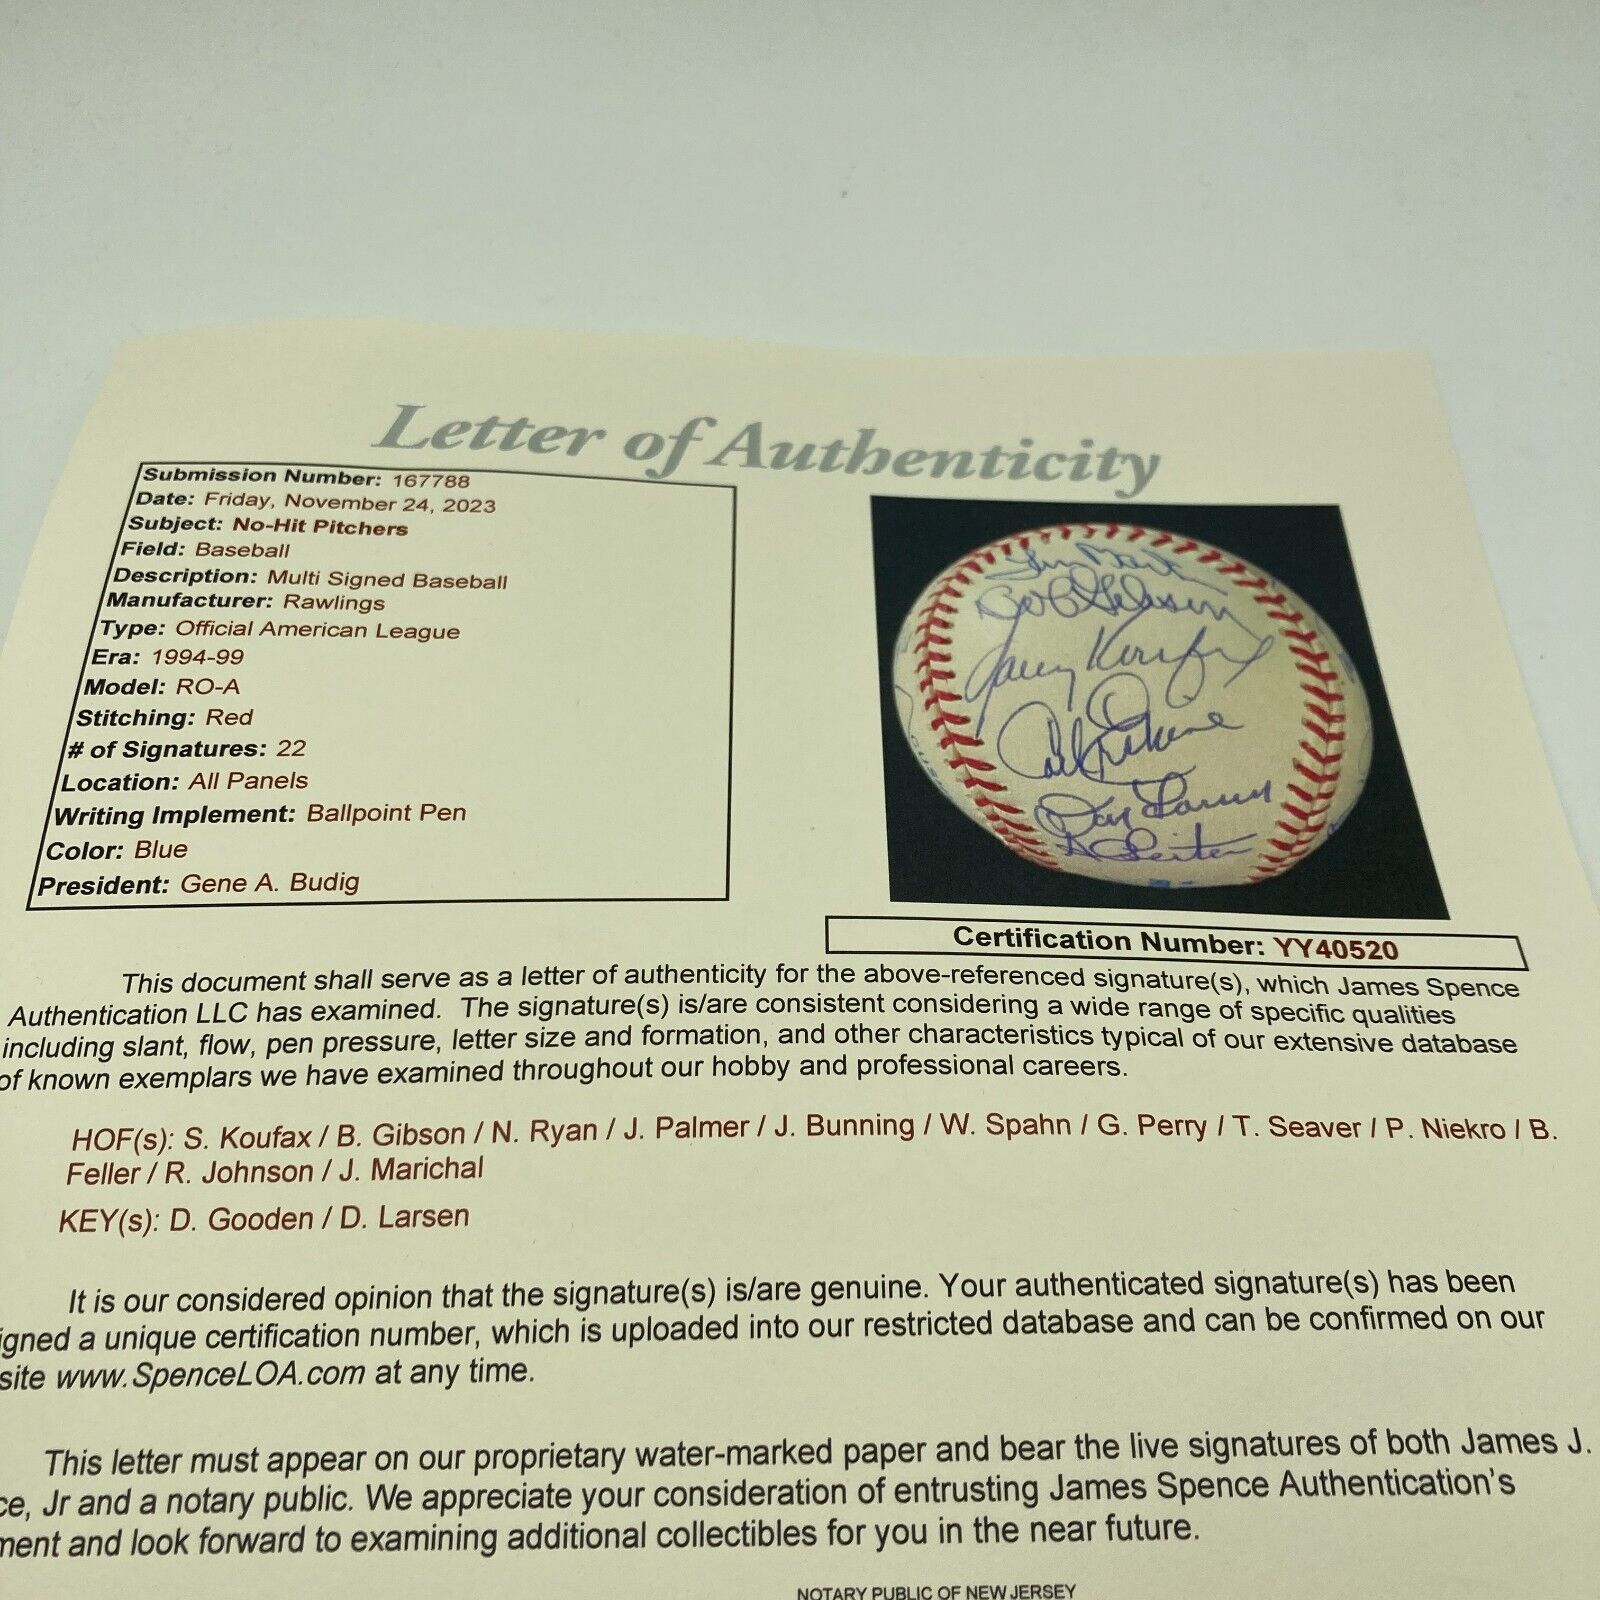 Letter of Authenticity
Submission Number: 167788
Date: Friday, November 24, 2023
Subject: No-Hit Pitchers
Field: Baseball
Description: Multi Signed Baseball
Manufacturer: Rawlings
Type: Official American League
Era: 1994-99
Model: RO-A
Stitching: Red
# of Signatures: 22
Location: All Panels
Writing Implement: Ballpoint Pen
Color: Blue
President: Gene A. Budig
Bob Gibson
Sandy Koufax
Carl Erskine
Don Larsen
A Leiter
Certification Number: YY40520
This document shall serve as a letter of authenticity for the above-referenced signature(s), which James Spence
Authentication LLC has examined. The signature(s) is/are consistent considering a wide range of specific qualities
including slant, flow, pen pressure, letter size and formation, and other characteristics typical of our extensive database
of known exemplars we have examined throughout our hobby and professional careers.
HOF(s): S. Koufax / B. Gibson / N. Ryan / J. Palmer / J. Bunning / W. Spahn / G. Perry / T. Seaver / P. Niekro / B.
Feller / R. Johnson / J. Marichal
KEY(s): D. Gooden / D. Larsen
It is our considered opinion that the signature(s) is/are genuine. Your authenticated signature(s) has been
igned a unique certification number, which is uploaded into our restricted database and can be confirmed on our
site www.SpenceLOA.com at any time.
This letter must appear on our proprietary water-marked paper and bear the live signatures of both James J.
ce, Jr and a notary public. We appreciate your consideration of entrusting James Spence Authentication's
ment and look forward to examining additional collectibles for you in the near future.
NOTARY PUBLIC OF NEW JERSEY